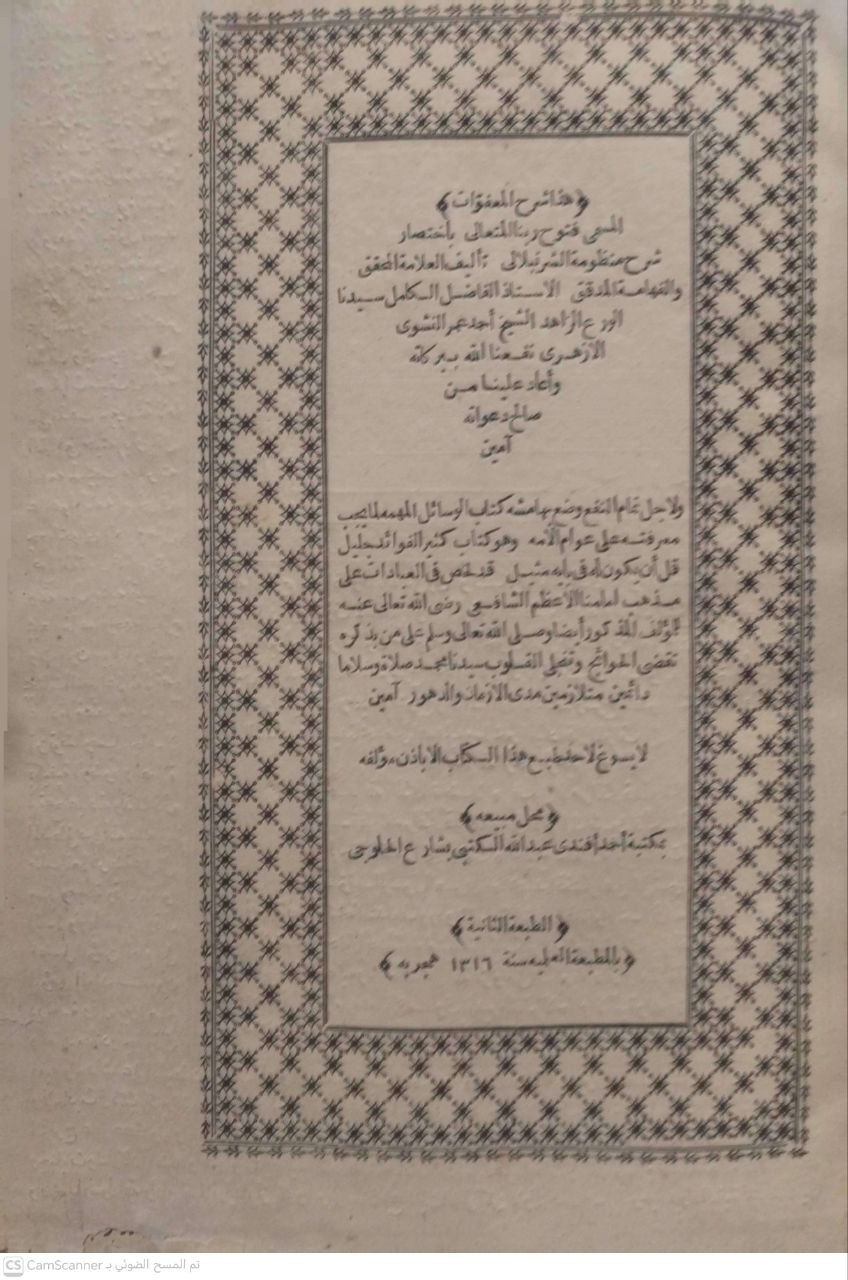 ﴿هذا شرح المعفوات﴾
المسمى فتوح ربنا المتعالى باختصار
شرح منظومة الشرنبلالى تأليف العلامة المحقق
والفهامة المدقق الاستاذ الفاضل الكامل سيدنا
الورع الزاهد الشيخ أحمد عمر النشوى
الازهرى نفعنا الله ببركاته
وأعاد علينا من
صالح دعواته
آمين
ولاجل تمام النفع وضع بهامشه كتاب الوسائل المهمه لما يجب
معرفته على عوام الأمه وهو كتاب كثير الفوائد جليل
قل أن يكون له فى بابه مثيل قد لخص فى العبادات على
مذهب امامنا الاعظم الشافعى رضى الله تعالى عنه
لمؤلف المذكور أيضا وصلى الله تعالى وسلم على من بذكره
تقضى الحوائج وتنجلى القلوب سيدنا محمد صلاة وسلاما
دائمين متلازمين مدى الازمان والدهور آمين
لا يسوغ لاحد طبع هذا الكتاب الا باذن مؤلفه
﴿محل مبيعه﴾
بمكتبة أحمد أفندى عبد الله الكتبى بشارع الحلوجى
﴿الطبعة الثانية﴾
﴿بالمطبعة العلميه سنة ١٣١٦ هجريه﴾
CS CamScanner تم المسح الضوئي بـ